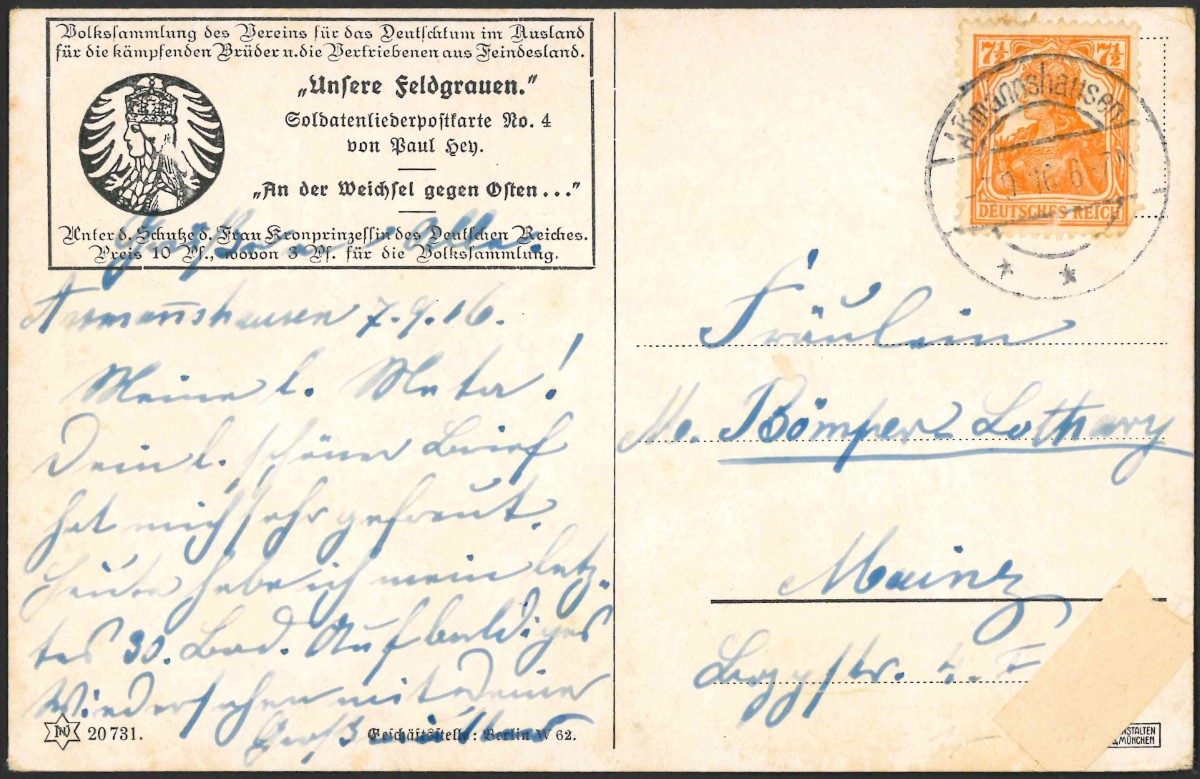 Volkssammlung des Vereins für das Deutschtum im Ausland
für die kämpfenden Brüder u. die Vertriebenen aus Feindesland.
„Unsere Feldgrauen.“
Soldatenliederpostkarte No. 4
von Paul Hey.
„An der Weichsel gegen Osten...“
Unter d. Schutze d. Frau Kronprinzessin des Deutschen Reiches.
Preis 10 Pf., wovon 3 Pf. für die Volkssammlung.
Alle.
Assmannshausen 7.9.16.
Meine l. Meta!
Dein l. schöner Brief
hat mich sehr gefreut.
Heute habe ich mein letz-
tes 30. Bad. Auf baldiges
Wiedersehen mit Deine
Großmutter
20731.
Geschäftsstelle: Berlin W 62.
7½ 7½
DEUTSCHES REICH
Aßmannshausen
9.16.6-7N
Fräulein
Bömper Lothary
Mainz
NSTALTEN
MÜNCHEN